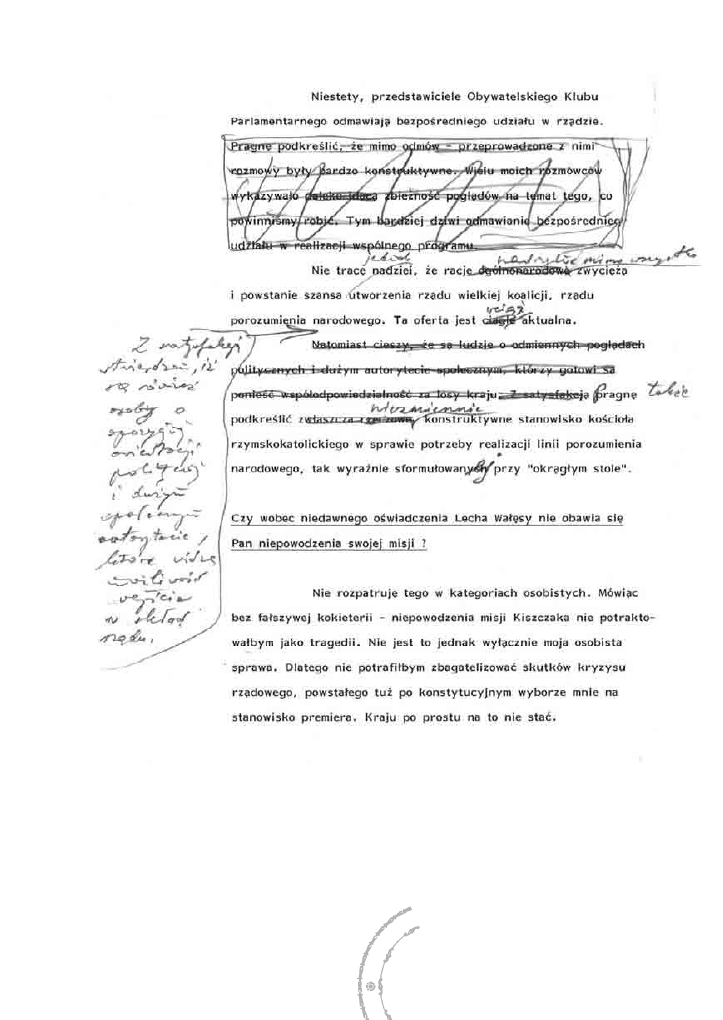 Niestety, przedstawiciele Obywatelskiego Klubu
Parlamentarnego odmawiają bezpośredniego udziału w rządzie.
Pragnę podkreślić, że mimo odmów - przeprowadzone z nimi
rozmowy były bardzo konstruktywne. Wielu moich rozmówców
wykazywało daleko idącą zbieżność poglądów na temat tego, co
powinniśmy robić. Tym bardziej dziwi odmawianie bezpośredniego
udziału w realizacji wspólnego programu.
jednak nadrzędne mimo wszystko
Nie tracę nadziei, że racje ogólnonarodowe zwyciężą
i powstanie szansa utworzenia rządu wielkiej koalicji, rządu
wciąż
porozumienia narodowego. Ta oferta jest ciągle aktualna.
Natomiast cieszy, że są ludzie o odmiennych poglądach
politycznych i dużym autorytecie społecznym, którzy gotowi są
ponieść współodpowiedzialność za losy kraju. Z satysfakcją pragnę także
niezmiennie
podkreślić zwłaszcza rzeczowe, konstruktywne stanowisko kościoła
rzymskokatolickiego w sprawie potrzeby realizacji linii porozumienia
narodowego, tak wyraźnie sformułowanych przy "okrągłym stole".
Z satysfakcją
stwierdzam, iż
są również
osoby o
opozycyjnej
orientacji
politycznej
i dużym
społecznym
autorytecie,
które widzą
możliwość
wejścia
w skład
rządu.
Czy wobec niedawnego oświadczenia Lecha Wałęsy nie obawia się
Pan niepowodzenia swojej misji ?
Nie rozpatruję tego w kategoriach osobistych. Mówiąc
bez fałszywej kokieterii - niepowodzenia misji Kiszczaka nie potrakto-
wałbym jako tragedii. Nie jest to jednak wyłącznie moja osobista
sprawa. Dlatego nie potrafiłbym zbagatelizować skutków kryzysu
rządowego, powstałego tuż po konstytucyjnym wyborze mnie na
stanowisko premiera. Kraju po prostu na to nie stać.